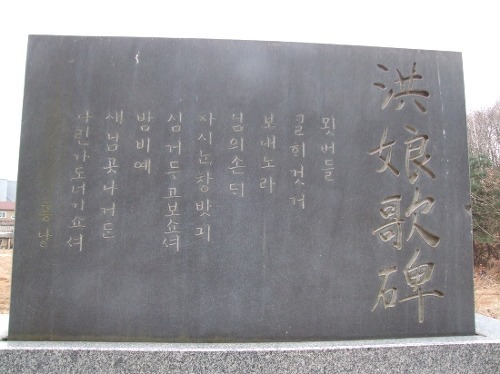 洪娘歌碑
묏버들
골히것거
보내노라
님의손듸
자시는창밧긔
심거두고보쇼셔
밤비예
새닙곳나거든
나린가도너기쇼셔
홍낭